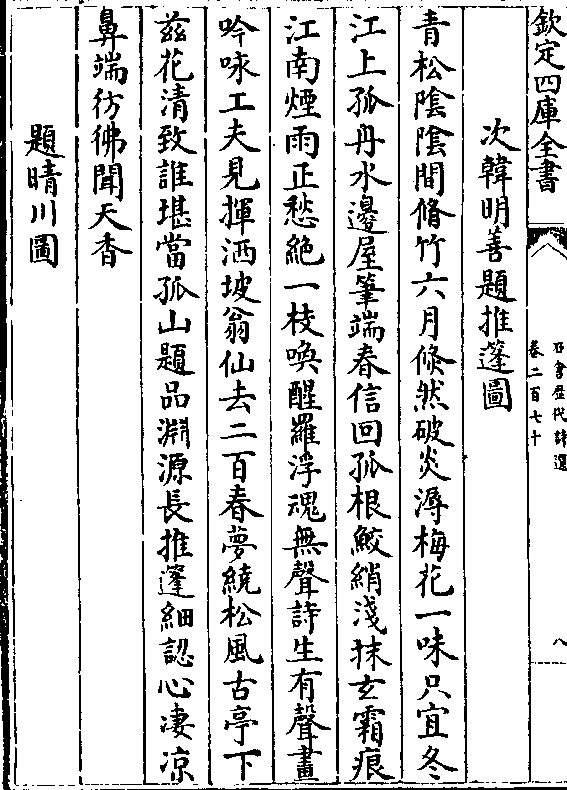 欽定四庫全書
石倉歷代詩選
卷二百七十
八
次韓明善題推蓬圖
青松陰陰間脩竹六月翛然破炎溽梅花一味只宜冬
江上孤舟水邊屋筆端春信回孤根鮫綃淺抹玄霜痕
江南煙雨正愁絶一枝喚醒羅浮魂無聲詩生有聲畫
吟咏工夫見揮洒坡翁仙去二百春夢繞松風古亭下
兹花清致誰堪當孤山題品淵源長推蓬細認心凄凉
鼻端彷彿聞天香
題晴川圖